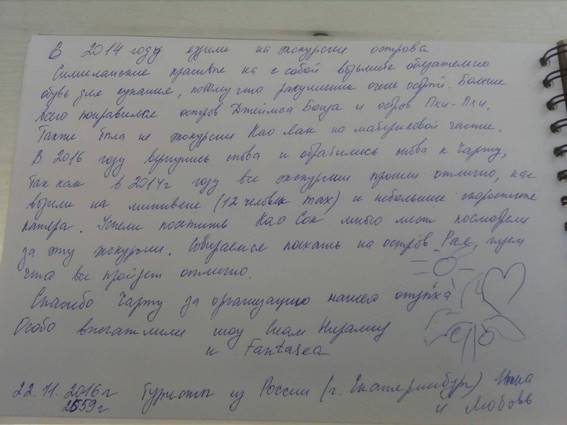 В 2014 году ездили на экскурсии острова
Симиланские красиво но с собой возьмите обязательно
обувь для купания, потому что ракушечник очень острый. Больше
всего понравился остров Джеймса Бонда и остров Пхи-Пхи.
Также были на экскурсии Као Лак на материковой части.
В 2016 году вернулись снова и обратились снова к Чарту,
так как в 2014г году все экскурсии прошли отлично, нас
возили на минивене (12 человек max) и небольшие скоростные
катера. Успели посетить Као Сок много мест посмотрели
за эту экскурсию. Собираемся поехать на остров Рая, ждем
что все пройдет отлично.
Спасибо Чарту за организацию нашего отпуска
Особо впечатлили шоу Сиам Нирамит
и Fantasea
22.11.2016г Туристы из России (г. Екатеринбург) Инна
2559г и Любовь